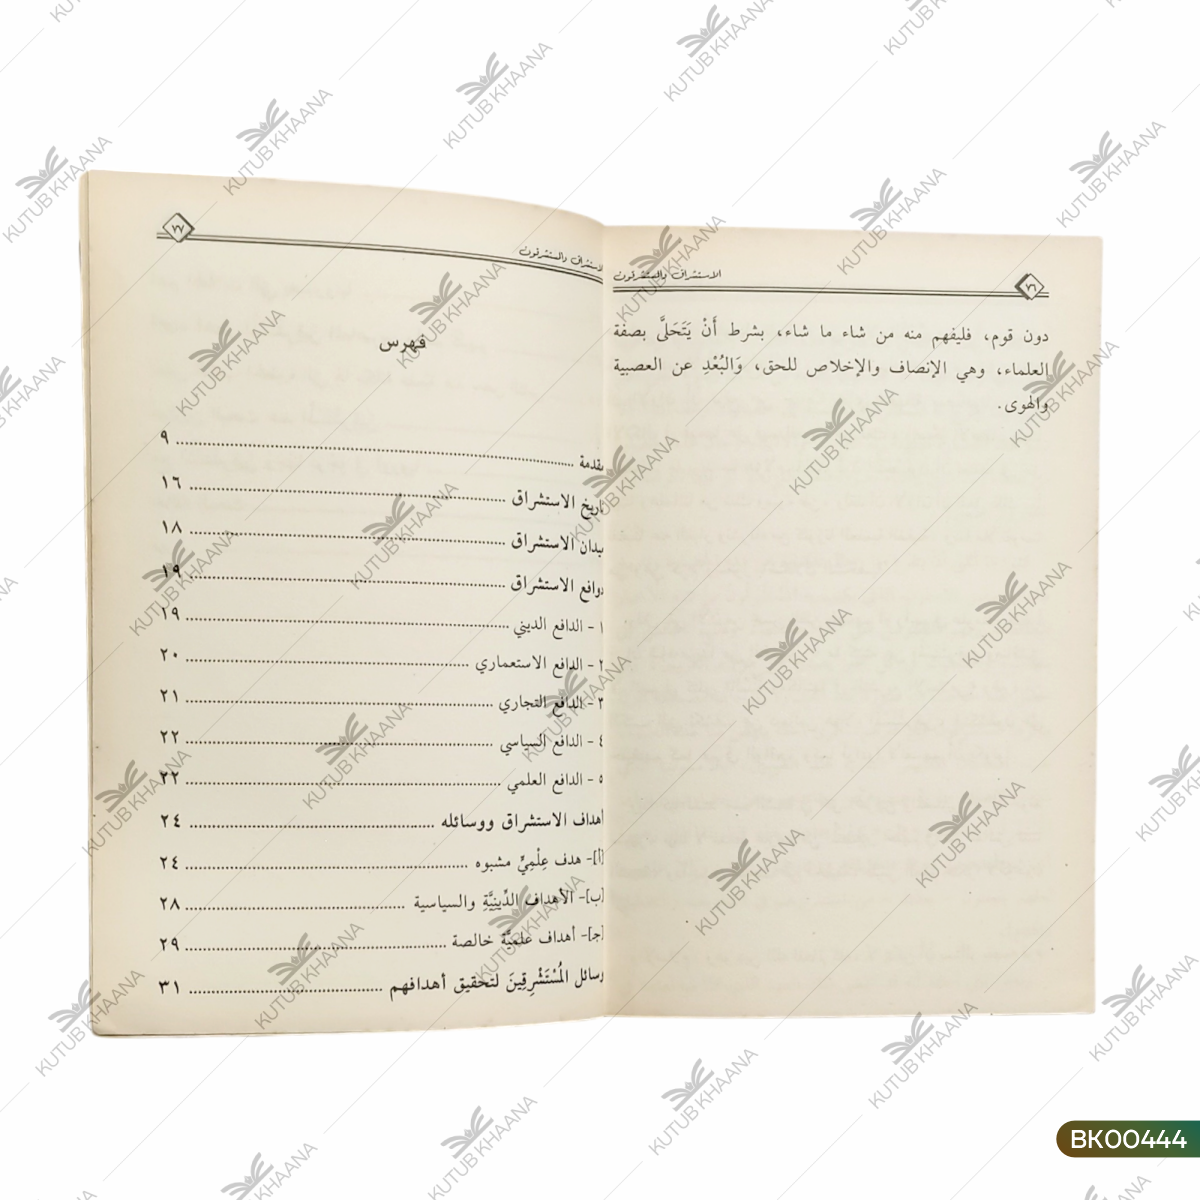 ٧٦
الاستشراق والمستشرقون
دون قوم، فليفهم منه من شاء ما شاء، بشرط أَنْ يَتَحَلَّى بصفة
العلماء، وهي الإنصاف والإخلاص للحق، وَالبُعْدِ عن العصبية
والهوى.
الاستشراق والمستشرقون
٧٧
فهرس
مقدمة ٩
تاريخ الاستشراق ١٦
ميدان الاستشراق ١٨
دوافع الاستشراق ١٩
١ - الدافع الديني ١٩
٢ - الدافع الاستعماري ٢٠
٣ - الدافع التجاري ٢١
٤ - الدافع السياسي ٢٢
٥ - الدافع العلمي ٢٢
أهداف الاستشراق ووسائله ٢٤
[أ]- هدف عِلْمِيٌّ مشبوه ٢٤
[ب]- الأهداف الدِّينِيَّةِ والسياسية ٢٨
[ج]- أهداف علميَّة خالصة ٢٩
وسائل المُسْتَشْرِقِينَ لتحقيق أهدافهم ٣١
KUTUB KHAANA
BK00444